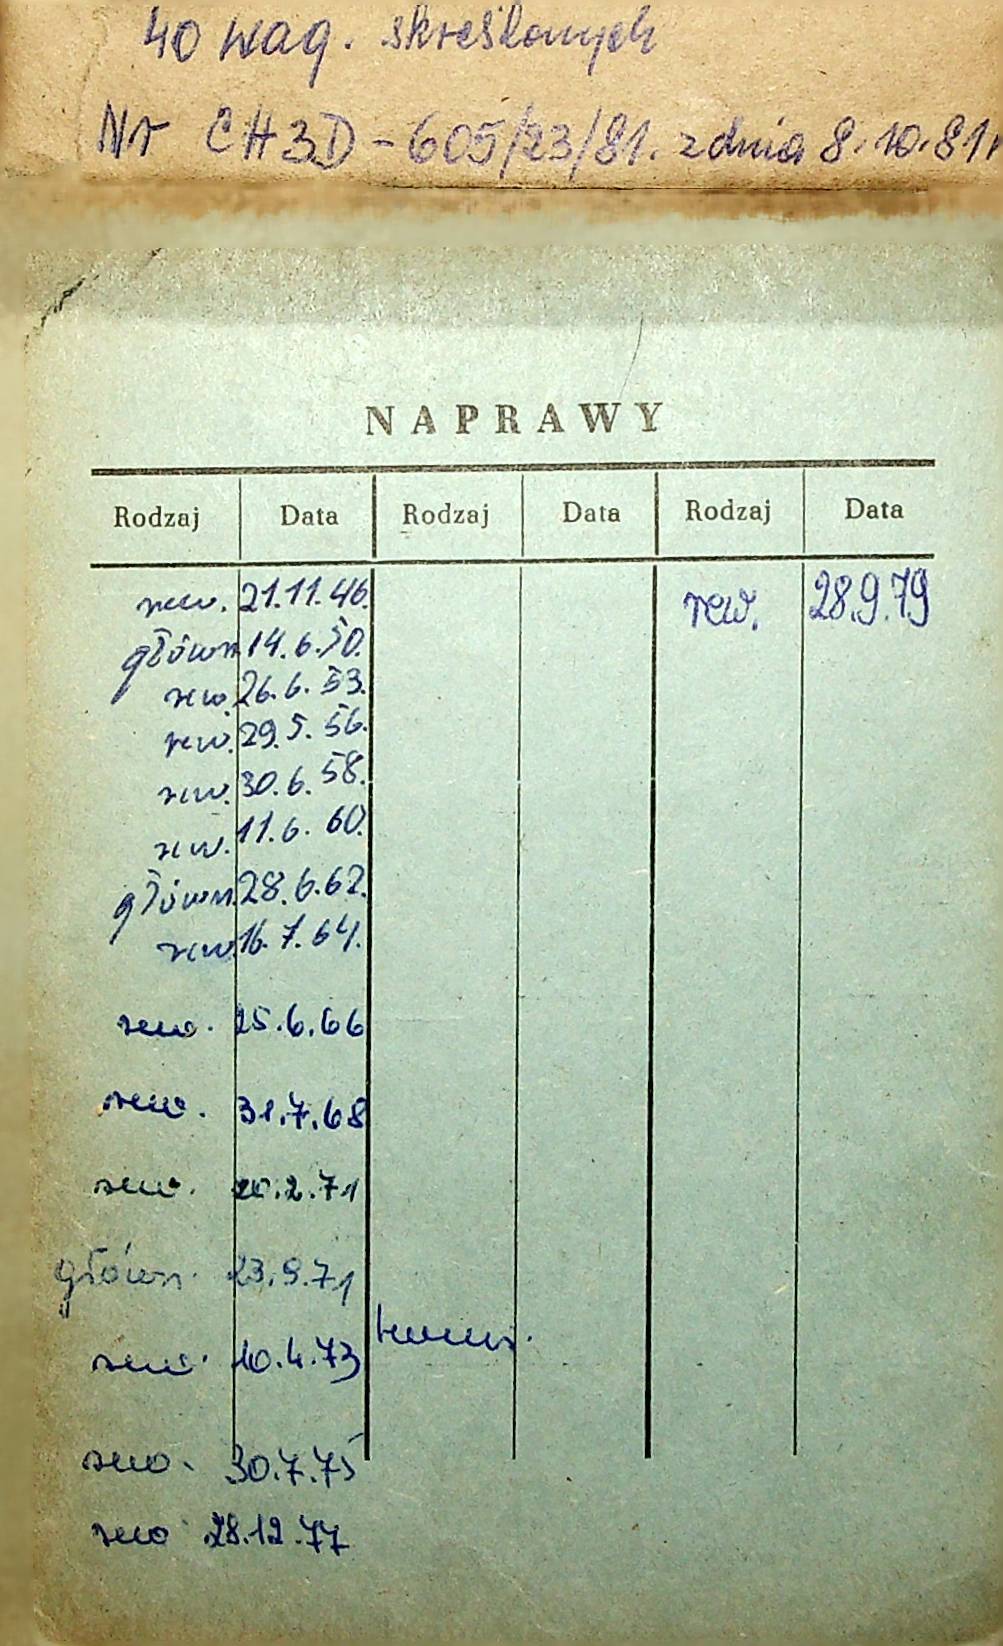 40 wag. skreślonych
Nr CH3D-605/23/81. z dnia 8.10.81r
NAPRAWY
Rodzaj Data Rodzaj Data Rodzaj Data
rew. 21.11.46. rew. 28.9.79
główn. 14.6.50.
rew. 26.6.53.
rew. 29.5.56.
rew. 30.6.58.
rew. 11.6.60.
główn. 28.6.62.
rew. 16.7.64.
rew. 25.6.66
rew. 31.7.68
rew. 20.2.71
główn. 23.9.71
rew. 10.4.73
rew. 30.7.75
rew 28.12.77